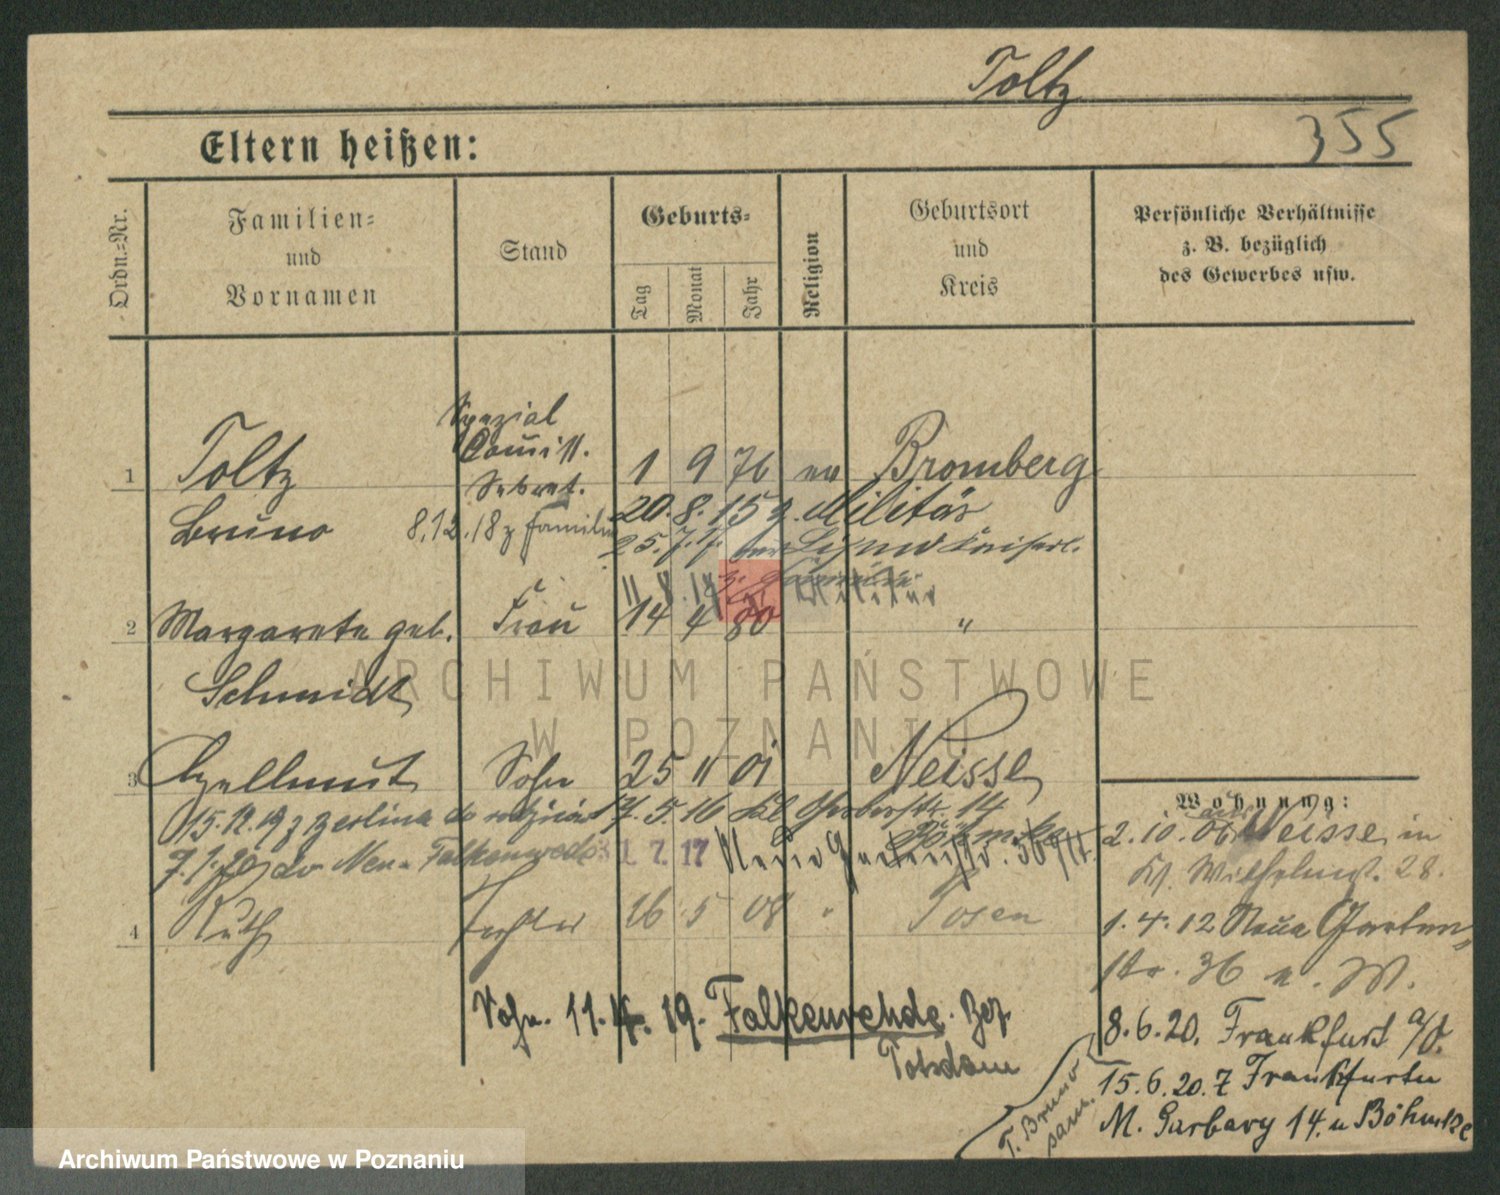 Toltz
355
Eltern heißen:
Ordn.-Nr.
Familien-
und
Vornamen
Stand
Geburts-
Tag
Monat
Jahr
Religion
Geburtsort
und
Kreis
Persönliche Verhältnisse
z. B. bezüglich
des Gewerbes usw.
Spezial
Comiss.
Sekret.
1 Toltz 1 9 76 ev Bromberg
Bruno 8.12.18 z familii 20. 8. 15 z. Militär
25. 7. 17
z. Familie
11. 8. 17 Militär
2 Margarete geb. Frau 14 4 80 "
Schmidt
3 Hellmut Sohn 25 11 01 Neisse
15.12.19 z Berlina do rodziców 17. 5. 16 Kl Gerberstr. 14
7.1.20 do Neu-Falkenwede 31. 7. 17 Neue Gartenstr. 36
4 Ruth Tochter 16 5 08 " Posen
Sohn. 11. 4. 19. Falkenwehde. Bez.
Potsdam
Wohnung:
2. 10. 06 aus Neisse in
Kl. Wilhelmst. 28.
1. 4. 12 Neue Garten-
str. 36
8. 6. 20. Frankfurt a/O.
15. 6. 20. z Frankfurtu
M. Garbary 14. u Böhmke
T. Bruno
sam.
ARCHIWUM PAŃSTWOWE
W POZNANIU
Archiwum Państwowe w Poznaniu